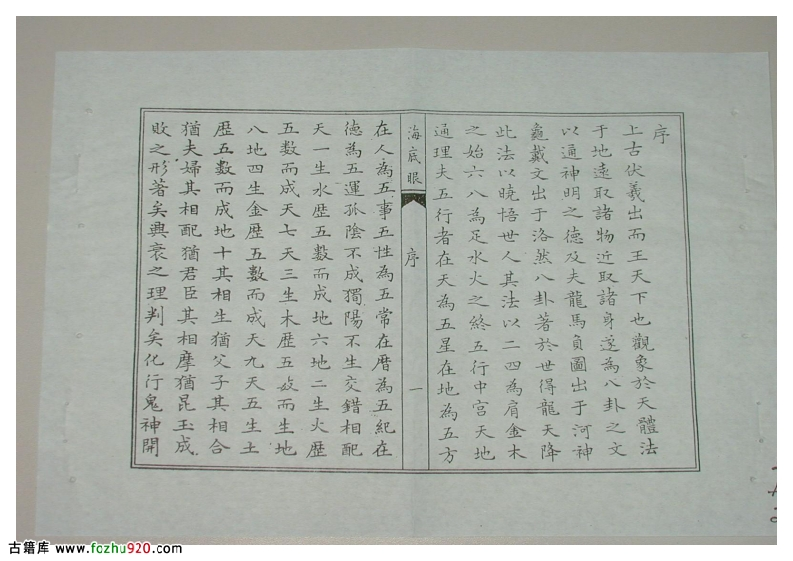 序
上古伏羲出而王天下也觀象於天體法
于地遠取諸物近取諸身遂為八卦之文
以通神明之德及夫龍馬負圖出于河神
龜戴文出于洛然八卦著於世得龍天降
此法以曉悟世人其法以二四為肩金木
之始六八為足水火之終五行中宮天地
通理夫五行者在天為五星在地為五方
海底眼
序
一
在人為五事五性為五常在曆為五紀在
德為五運孤陰不成獨陽不生交錯相配
天一生水歷五數而成地六地二生火歷
五數而成天七天三生木歷五数而生地
八地四生金歷五數而成天九天五生土
歷五數而成地十其相生猶父子其相合
猶夫婦其相配猶君臣其相摩猶昆玉成
敗之形著矣興衰之理判矣化行鬼神開
古籍库 www.fozhu920.com